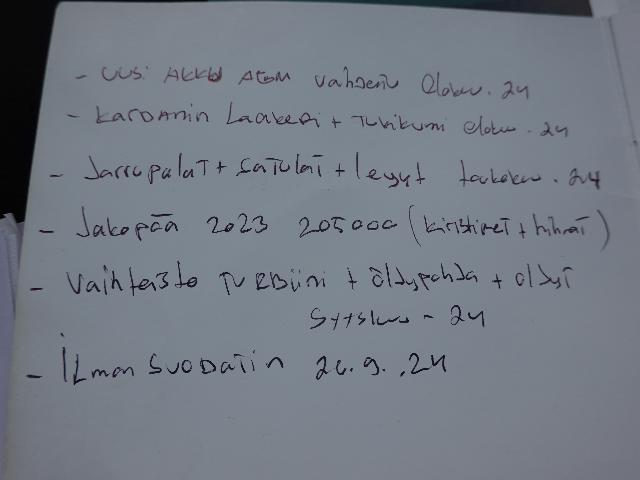 - UUSi AKKU ATOM vaihdettu Eloku. 24
- KARDANin LAAKERI + TUKIKUMI eloku. 24
- Jarrupalat + SATULAT + levyt toukoku. 24
- Jakopää 2023 205000 (kiristimet + hihnat)
- Vaihteisto TURBiini + öljypohja + öljyt
Syysku - 24
- ILman SUODATin 26.9.24